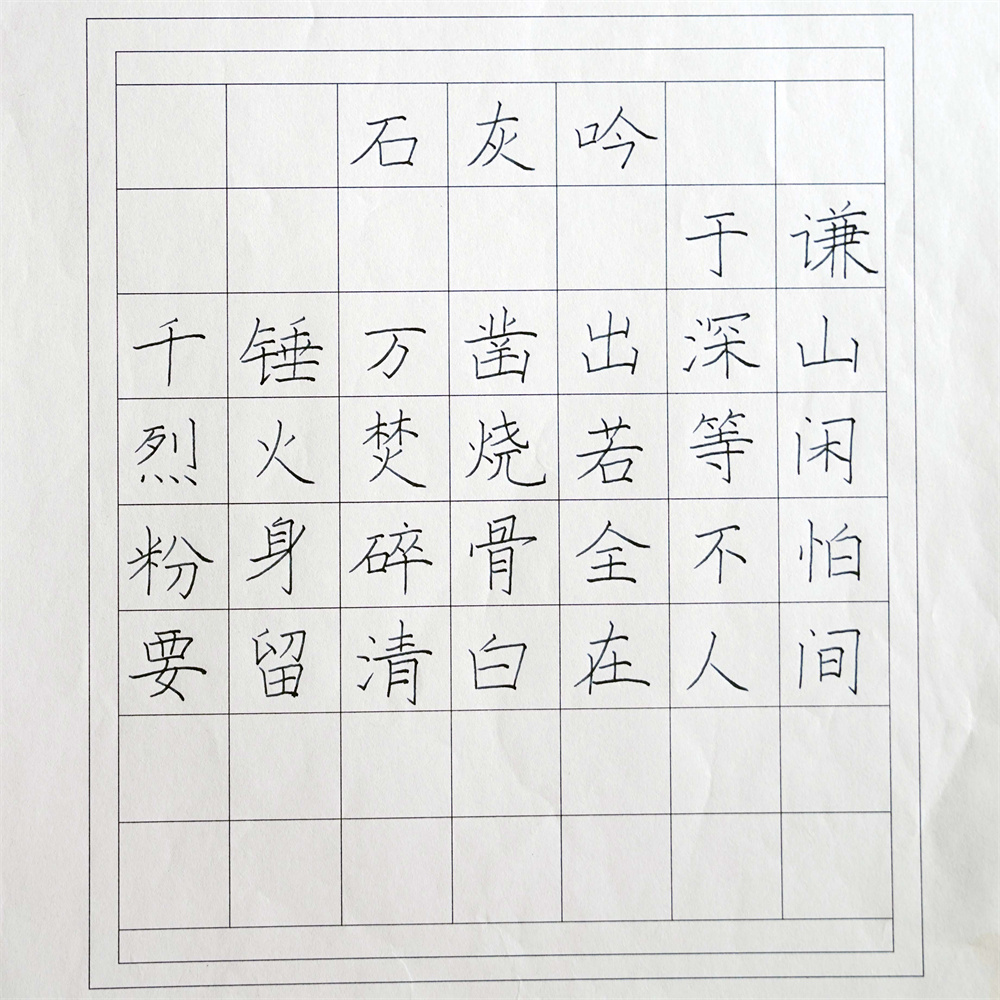 石灰吟
于谦
千锤万凿出深山
烈火焚烧若等闲
粉身碎骨全不怕
要留清白在人间